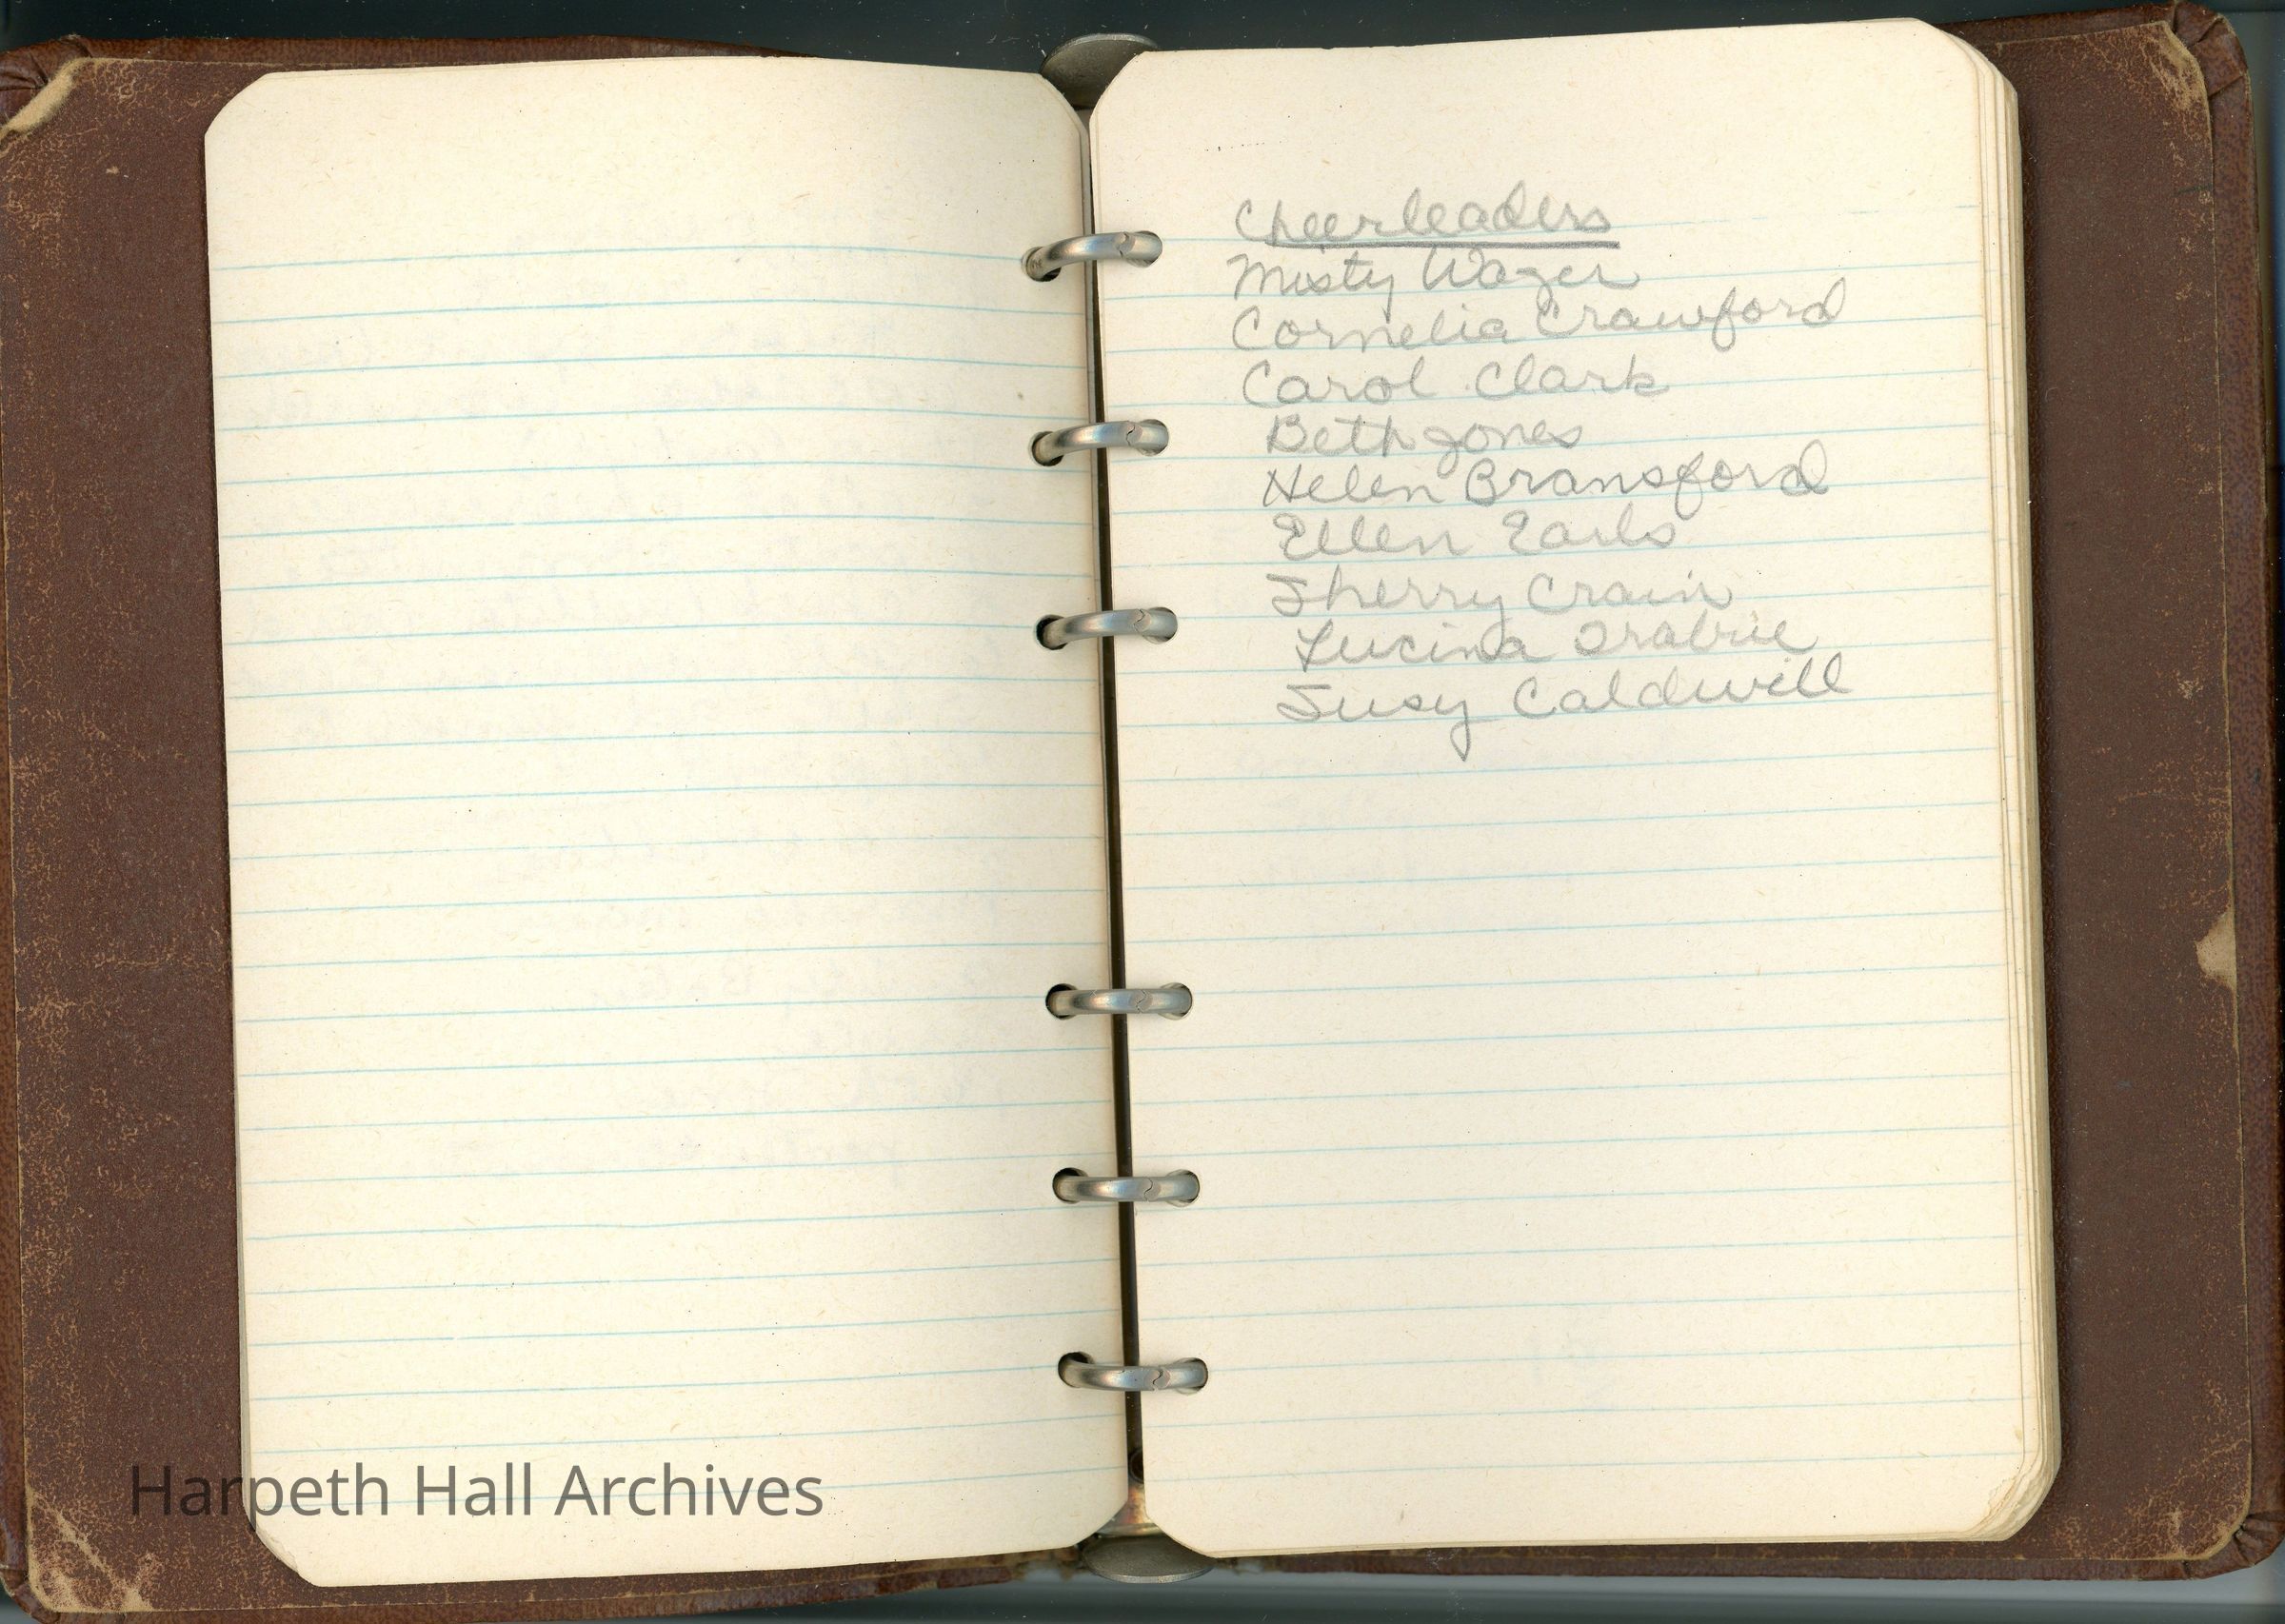 Cheerleaders
Misty Wager
Cornelia Crawford
Carol Clark
Beth Jones
Helen Bransford
Ellen Earls
Sherry Crain
Lucina
Susy Caldwell
Harpeth Hall Archives